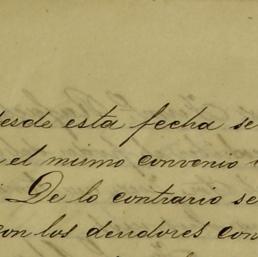 desde esta fecha se
el mismo convenio
De lo contrario se
con los deudores con